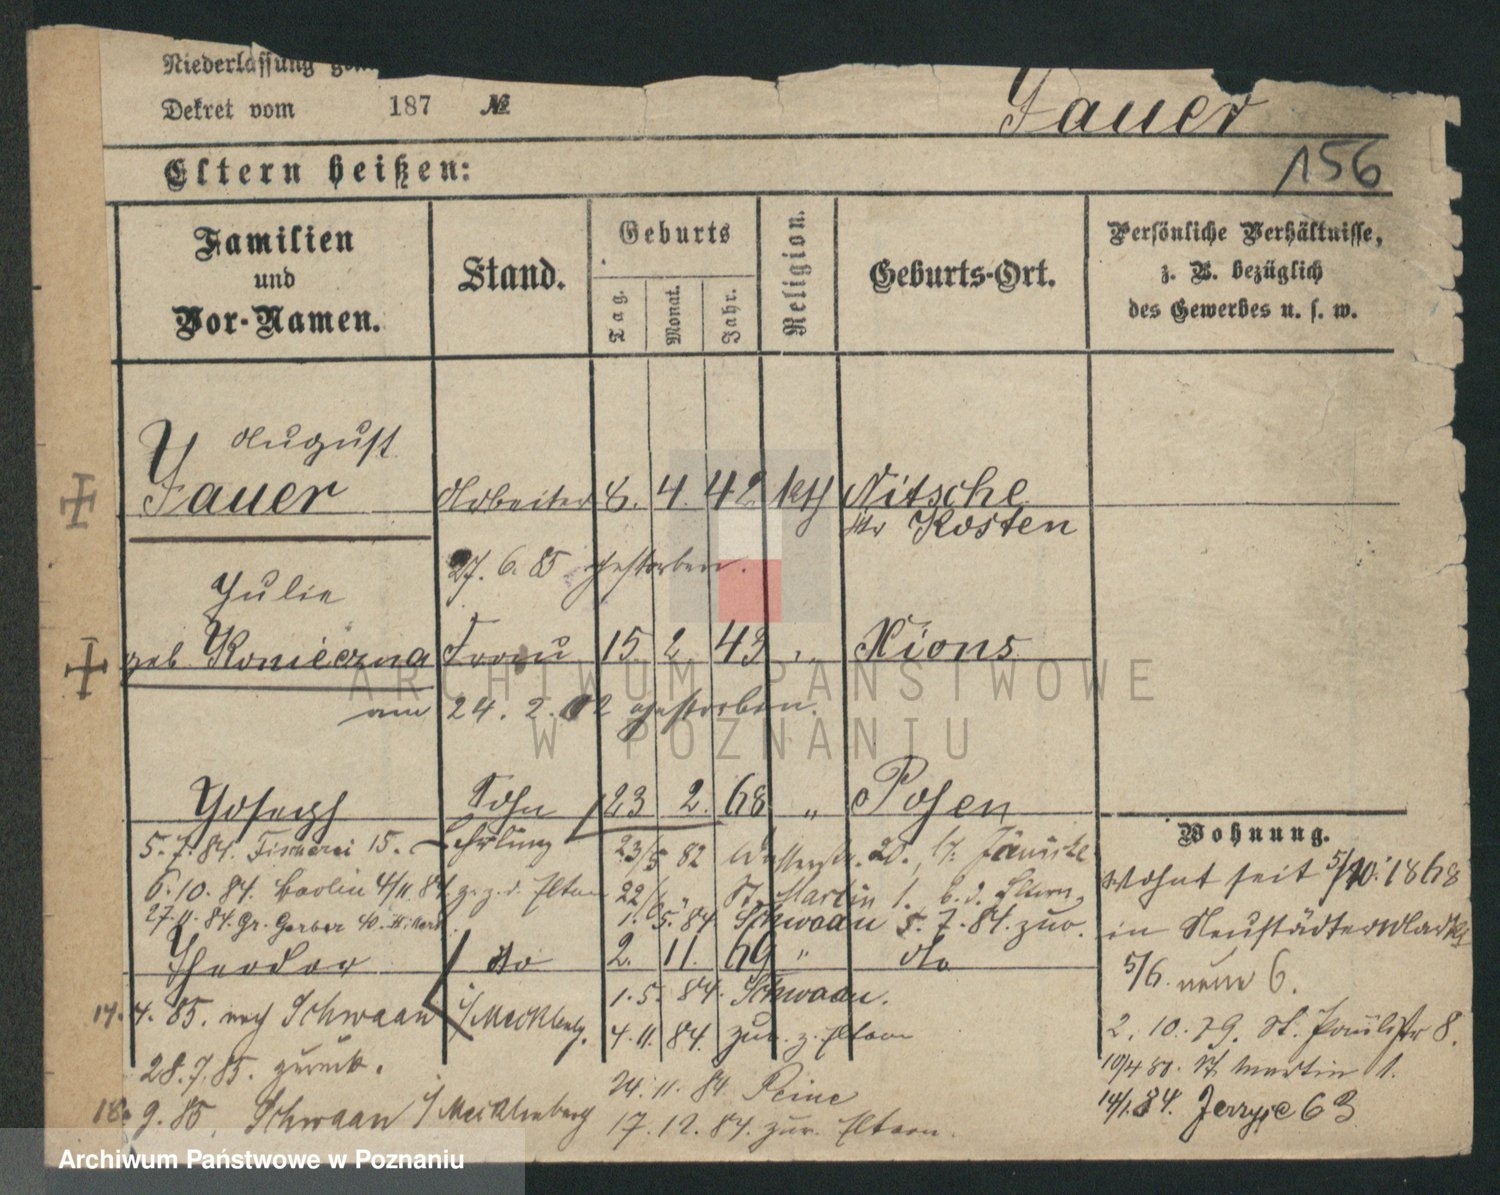 Niederlassung
Dekret vom 187 №
Jauer
156
Eltern heißen:
Familien
und
Vor-Namen.
Stand.
Geburts
Tag.
Monat.
Jahr.
Religion.
Geburts-Ort.
Persönliche Verhältnisse,
z. B. bezüglich
des Gewerbes u. s. w.
August
Jauer Arbeiter 8. 4. 42 kth Nitsche
Kr Kosten
27. 6. 85 gestorben.
Julie
geb Konieczna Frau 15 2 43 " Xions
am 24. 2. 02 gestorben.
Joseph Sohn 23 2. 68 " Posen
Wohnung.
5. 7. 84. Fischerei 15. Lehrling 23/5 82 Wasserstr. 20.
wohnt seit 5/10. 1868
6. 10. 84. Berlin 4/11. 84. z. z. d. Eltern 22/ St. Martin 1. b. d. Eltern,
27. 11. 84. Gr. Gerber 40. 1. 5. 84 Schwaan 5. 7. 84. zur.
in Neustädter Markt
Theodor do 2. 11. 69 " do
5/6. neue 6.
14. 4. 85. nach Schwaan i/Mecklenbg. 1. 5. 84. Schwaan.
4. 11. 84. zur. z. Eltern
2. 10. 79. St. Paulistr 8.
28. 7. 85. zurück.
10/4 80. St. Martin 1.
24. 11. 84 Peine
14/1. 84. Jerzyce 63
18. 9. 85. Schwaan i/Mecklenberg 17. 12. 84. zur. Eltern.
ARCHIWUM PAŃSTWOWE
W POZNANIU
Archiwum Państwowe w Poznaniu